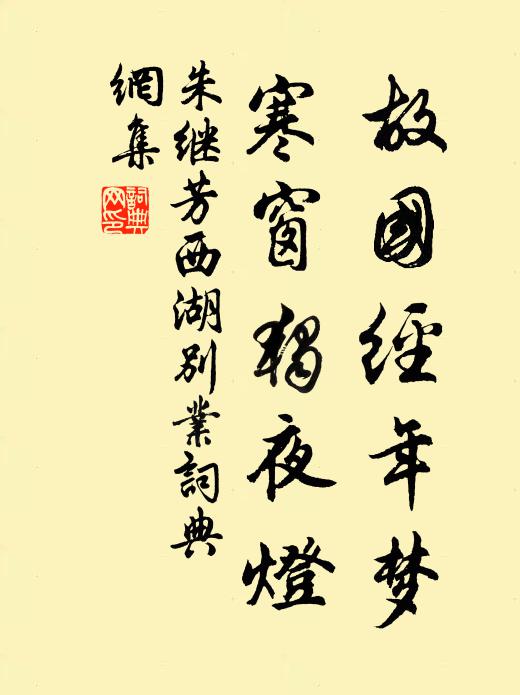 故國經年梦
寒窗獨夜燈
朱继芳西湖别業詞典
網集
詞典網印